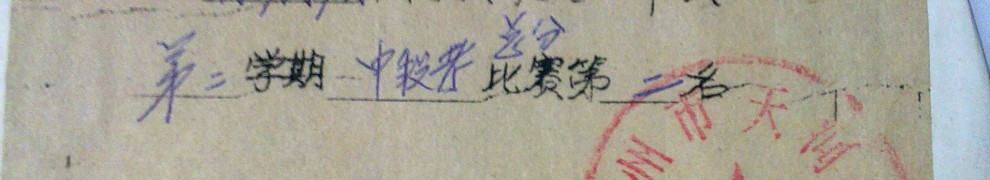 总分
第二学期中段考比赛第二名
州市天河